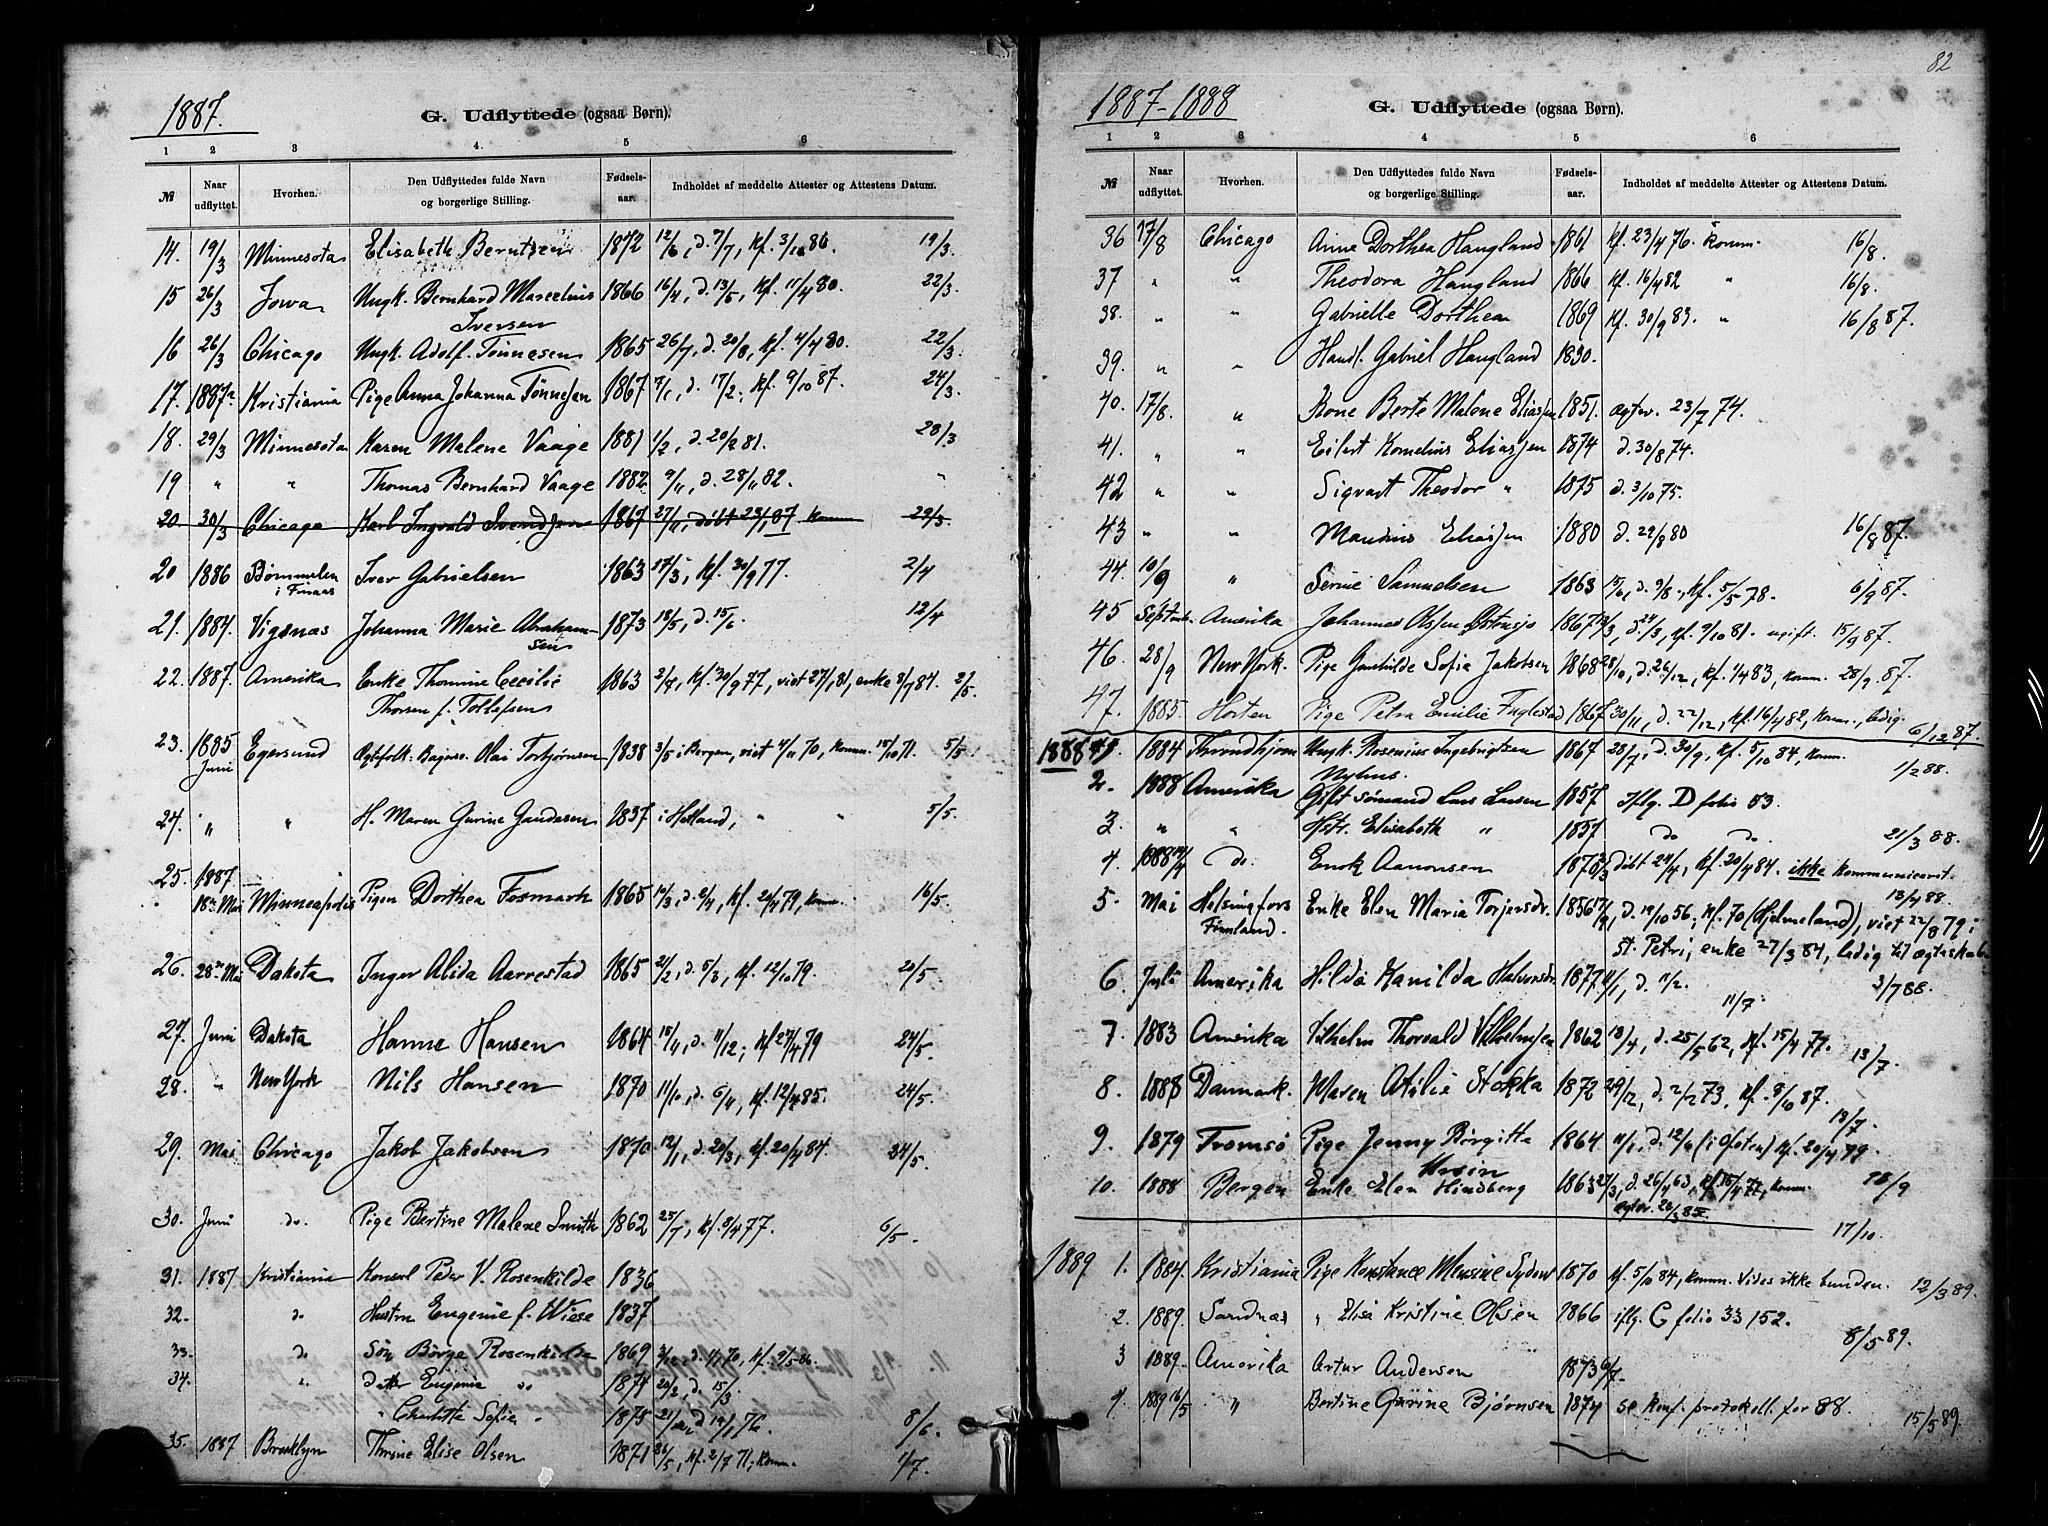 1887.
G. Udflyttede (ogsaa Børn).
1 2 3 4. 5 6
№ Naar udflyttet. Hvorhen. Den Udflyttedes fulde Navn og borgerlige Stilling. Fødsels-aar. Indholdet af meddelte Attester og Attestens Datum.
14. 19/3 Minnesota Elisabeth Berntsen 1872 12/6, d. 7/7, kf. 3/10 86. 19/3.
15 26/3 Jowa Ungk. Bernhard Marcelius 1866 16/4, d. 13/5, kf. 11/4 80. 22/3.
Iversen
16 26/3 Chicago Ungk. Adolf Tönnesen 1865 26/7, d. 20/8, kf. 4/4 80. 22/3.
17. 1887 Kristiania Pige Anna Johanna Tønnesen 1867 d. 17/2, kf. 9/10 87. 24/3.
18. 29/3 Minnesota Karen Malene Vaage 1881 1/2, d. 20/2 81. 28/3
19 " " Thomas Bernhard Vaage 1882 9/11, d. 28/11 82. "
20 30/3 Chicago Karl Ingvald Svendsen 1867 27/11, döbt 23/1 87 komm 29/3.
20 1886 Bømmelen Iver Gabrielsen 1863 17/5, kf. 30/9 77. 2/4
i Finaas
21. 1884. Vigsnæs Johanna Marie Abraham- 1873 18/5, d. 15/6. 12/4
sen
22. 1887. Amerika Enke Thomine Cecilie 1863 2/8, kf. 30/9 77, viet 27/1 81, enke 8/9 84. 2/5.
Thorsen f. Tollefsen
23. 1885 Egersund Ægtefolk: Bagers. Olai Torbjørnsen 1838 3/5 i Bergen, viet 4/11 70, komm. 15/10 71. 5/5.
Juni
24. " " H. Maren Gurine Gundersen 1837 i Hetland, " " 5/5.
25. 1887
18de Mai Minneapolis Pigen Dorthea Fosmark 1865 10/3, d. 2/4, kf. 20/4 79, komm. 16/5.
26. 28de Mai Dakota Inger Alida Aarrestad 1865 21/2, d. 5/3, kf. 12/10 79. 20/5.
27. Juni Dakota Hanne Hansen 1864 15/11, d. 11/12; kf 27/4 79 24/5.
28. " New York Nils Hansen 1870 11/10, d. 6/11, kf. 12/4 85. 24/5.
29. Mai Chicago Jakob Jakobsen 1870 12/1, d. 20/3, kf. 20/4 84. 24/5.
30. Juni do. Pige Bertine Malene Smith 1862 25/7, kf. 8/4 77. 6/5.
31. 1887 Kristiania Konsul Peder V. Rosenkilde 1836
32. do Hustru Eugenie f. Wiese 1837
33. do Søn Börge Rosenkilde 1869 d. 1/1 70, kf. 9/5 86.
34. " datter Eugenia do 1874 20/2, d. 15/3.
" Charlotte Sofie " 1875 d 19/1 76. 8/6.
35. 1887 Brooklyn Thrine Elise Olsen 1871 26/5, kf. 2/7 71; komm. 1/7.
82
1887-1888
G. Udflyttede (ogsaa Børn).
1 2 3 4 5 6
№ Naar udflyttet. Hvorhen. Den Udflyttedes fulde Navn og borgerlige Stilling. Fødsels-aar. Indholdet af meddelte Attester og Attestens Datum.
36 17/8 Chicago Anne Dorthea Haugland 1861 kf. 23/4 76. komm. 16/8.
37 " " Theodora Haugland 1866 kf. 16/4 82 " 16/8.
38. " " Gabrielle Dorthea 1869 kf. 30/9 83. " 16/8 87.
39. " " Handl. Gabriel Haugland 1830.
40. 17/8. " Kone Berte Malene Eliassen 1851. ægtev. 23/7 74.
41. " " Eilert Kornelius Eliassen 1874 d. 30/8 74.
42 " " Sigvart Theodor " 1875 d. 3/10 75.
43 " " Maudius Eliassen 1880 d. 22/8 80 16/8 87.
44. 10/9 " Serine Samuelsen 1863 15/6, d. 9/8, kf. 5/5 78. 6/9 87.
45 Septbr. Amerika Johannes Olsen 1867 d. 24/3, kf. 9/10 81. ugift. 15/9 87.
46. 28/9 New York. Pige Gunhilde Sofia Jakobsen 1868 28/10, d. 26/12, kf. 1/4 83, komm. 28/9. 87.
47. 1885. Horten Pige Petra Emilie Fuglestad 1867 30/11, d. 22/12, kf. 16/4 82, komm., ledig. 6/12 87.
1888 1. 1884 Throndhjem Ungk. Rosenius Ingebrigtsen 1867 28/7, d. 30/9, kf. 5/10 84, komm. 1/2 88.
Nyhus.
2. 1888 Amerika Gift Sømand Lars Larsen 1857 Iflg. D folio 83.
3. " " Hstr. Elisabeth " 1857 do do. 21/3 88.
4. 1888 14/4 do. Enok Aanonsen 1870 döbt 24/4, kf. 20/4 84. ikke kommuniceret. 13/4 88.
5. Mai Helsingfors Enke Elen Maria Torjersdr. 1856 17/9, d. 19/10 56; kf. 70 (Hjelmeland), viet 22/8 79 i
Finnland. st. Petri, enke 27/3 84, ledig til ægteskab. 3/7 88.
6. Juli Amerika Hilda Kamilda Halvorsdr. 1877 1/1, d. 11/2. 11/7.
7. 1883 Amerika Vilhelm Thorvald Vilhelmsen 1862 18/4, d. 25/5 62, kf. 15/4 77. 13/7.
8. 1888 Danmark. Maren Otilie Stokka 1872 29/12, d. 2/2 73, kf. 8/10 87. 13/7.
9. 1879 Tromsø Pige Jenny Børgitte 1864 11/1, d. 12/6 (i Ofoten) kf. 20/4 79. 28/9
10. 1888 Bergen Enke Elen Hindberg 1863 27/3, d. 26/4 63, kf. 15/4 77, komm.
ægtev. 26/3 85. 17/10.
1889 1. 1884. Kristiania Pige Konstance Mensine Sydow 1870 kf. 5/10 84, komm. Vides ikke bunden. 12/3 89.
2. 1889. Sandnæs " Elisa Kristine Olsen 1866 iflg. C folio 33 152. 8/5 89.
3 1889. Amerika Artur Andersen 1873 6/7.
4. 1889 16/5 " Bertine Gurine Bjørnsen 1874 se konf. protokoll. for 88. 15/5 89.